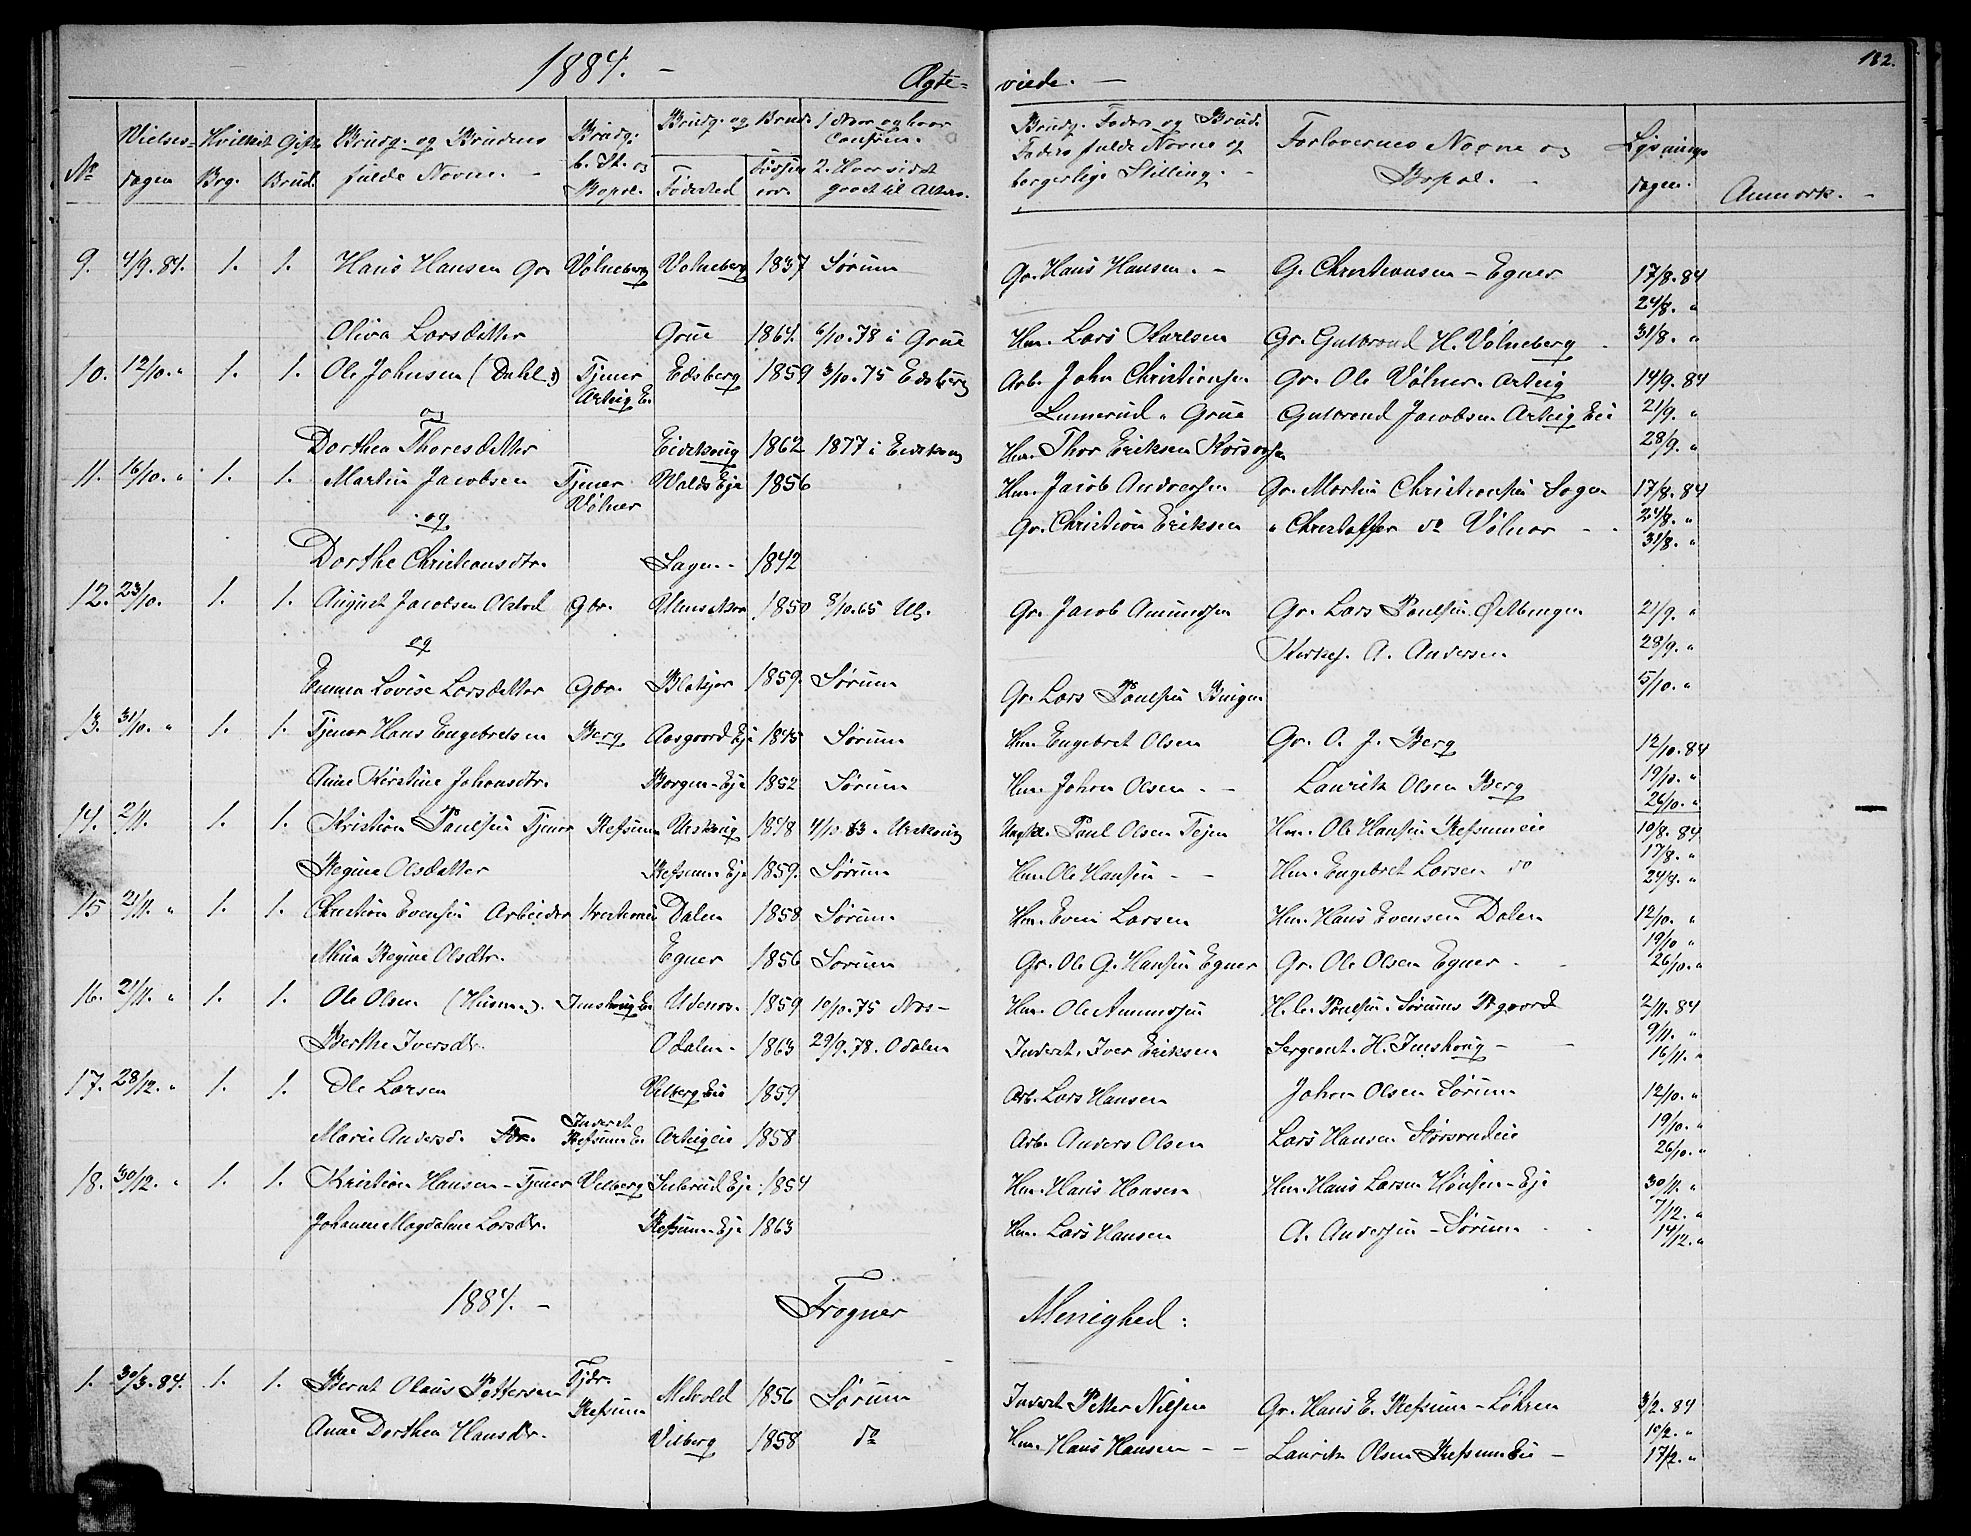 1884. –
Ægte=
viede. –
182.
No
Vielses-dagen
Hvilket Gifte
Brg. Brud.
Brudg. og Brudens fulde Navne. –
Brudg. b. St. og Bopæl.
Brudg. og Bruds
Fødested
Fødsels aar.
1 Naar og hvor Confirm.
2. Hvor sidst gaaet til Alters.
Brudg. Faders og Bruds Faders fulde Navne og borgerlige Stilling. –
Forlovernes Navne og Bopæl. –
Lysnings dagen.
Anmærk. –
9. 4/9.84. 1. 1. Hans Hansen Gr. Vølneberg Vølneberg 1837 Sørum Gr. Hans Hansen. – G. Christiansen – Egner 17/8.84
24/8. "
Oliva Larsdatter Grue 1864. 6/10.78 i Grue Hm. Lars Karlsen Gr. Gulbrand H. Vølneberg 31/8. "
10. 12/10. " 1. 1. Ole Johnsen (Dahl) Tjener Eidsberg 1859 3/10.75 Eidsberg Arb. John Christiansen Gr. Ole Vølner. Arteig 14/9.84
Arteig E. Lunnerud i Grue Gulbrand Jacobsen Arteig Eie 21/9. "
og
Dorthea Thoresdatter Eidskoug 1862 1877 i Eidskoug Hm. Thor Eriksen 28/9. "
11. 16/10. " 1. 1. Martin Jacobsen Tjener Valds Eje 1856 Hm. Jacob Andersen Gr. Martin Christiansen Sagen 17/8.84
Vølner
og Gr. Christian Eriksen " Christoffer do Vølner – 24/8. "
31/8. "
Dorthe Christiansdtr. Sagen – 1842
12. 23/10. 1. 1. August Jacobsen Gbr. 1850 8/10.65 Ul. Gr. Jacob Amundsen Gr. Lars Paulsen 21/9. "
og Kirkes. A. Andersen 28/9. "
Emma Lovise Larsdatter Gbr. Blaksjer 1859. Sørum Gr. Lars Paulsen Bingen 5/10. "
13. 31/10. " 1. 1. Tjener Hans Engebretsen Berg Aasgaard Eje 1845 Sørum Hm. Engebret Olsen Gr. O. J. Berg 12/10.84
Anne Kirstine Johansdtr. Borgen – Eje 1852 Sørum Hm. Johan Olsen – – Lauritz Olsen Berg 19/10. "
26/10. "
14. 2/11. 1. 1. Kristian Paulsen Tjener Refsum Urskoug 1848 4/10.63 i Urskoug Ungk. Paul Olsen Tejen Hm. Ole Hansen Refsumeie 10/8.84
17/8. "
Regine Olsdatter Refsum Eje 1859. Sørum Hm. Ole Hansen – – Hm. Engebret Larsen do 24/8. "
15 21/11. " 1. 1. Christian Evensen Arbeider Kristiania Dalen 1858 Sørum Hm. Even Larsen Hm. Hans Evensen Dalen 12/10. "
19/10 "
Mina Regine Olsdtr. Egner 1856 Sørum Gr. Ole G. Hansen Egner Gr. Ole Olsen Egner – 26/10. "
16. 21/11. " 1. 1. Ole Olsen (Husm.). Imshoug Eie Udenes. 1859 10/10.75 Nes – Hm. Ole Amundsen H. L. Poulsen. Sørums Pgaard 2/11.84
9/11. "
Berthe Iversdtr. Odalen – 1863 29/9.78. Odalen Inderst. Iver Eriksen Sergeant. H. Imshoug – 16/11. "
17. 28/12. " 1. 1. Ole Larsen Vilberg Eie 1859 Arb. Lars Hansen Johan Olsen Sørum 12/10. "
Inderst 19/10. "
Marie Andersd. Fdr. Refsum E. Arteigeie 1858 Arb. Anders Olsen Lars Hansen 26/10. "
18. 30/12. " 1. 1. Kristian Hansen – Tjener Vilberg Inbrud Eje 1854 Hm. Hans Hansen Hm. Hans Larsen Hønsen – Eje 30/11. "
7/12. "
Johanne Magdalene Larsdtr. Refsum Eje 1863 Hm. Lars Hansen A. Andersen – Sørum 14/12. "
1884. –
Frogner
Menighed:
1. 30/3.84. 1. 1. Bernt Olaus Pettersen Tjdr. Melvold 1856 Sørum Inderst Petter Nilsen Gr. Hans E. Refsum – Løhren 3/2.84
Refsum
10/2. "
Anne Dorthea Hansdtr. Vilberg 1858 do Hm. Hans Hansen – – Lauritz Olsen Refsum Eie – 17/2. "